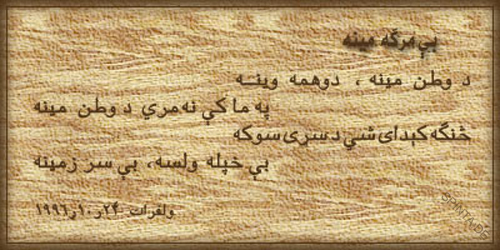 بې مرګه مينه
د وطن مينه ، دوهمه وينـه
په ما کې نه مري د وطن مينه
څنګه کېدای شي د سری سوکه
بې خپله ولسه، بې سر زمينه
ولفرات ۲۴ر۱۰ر۱۹۹۶